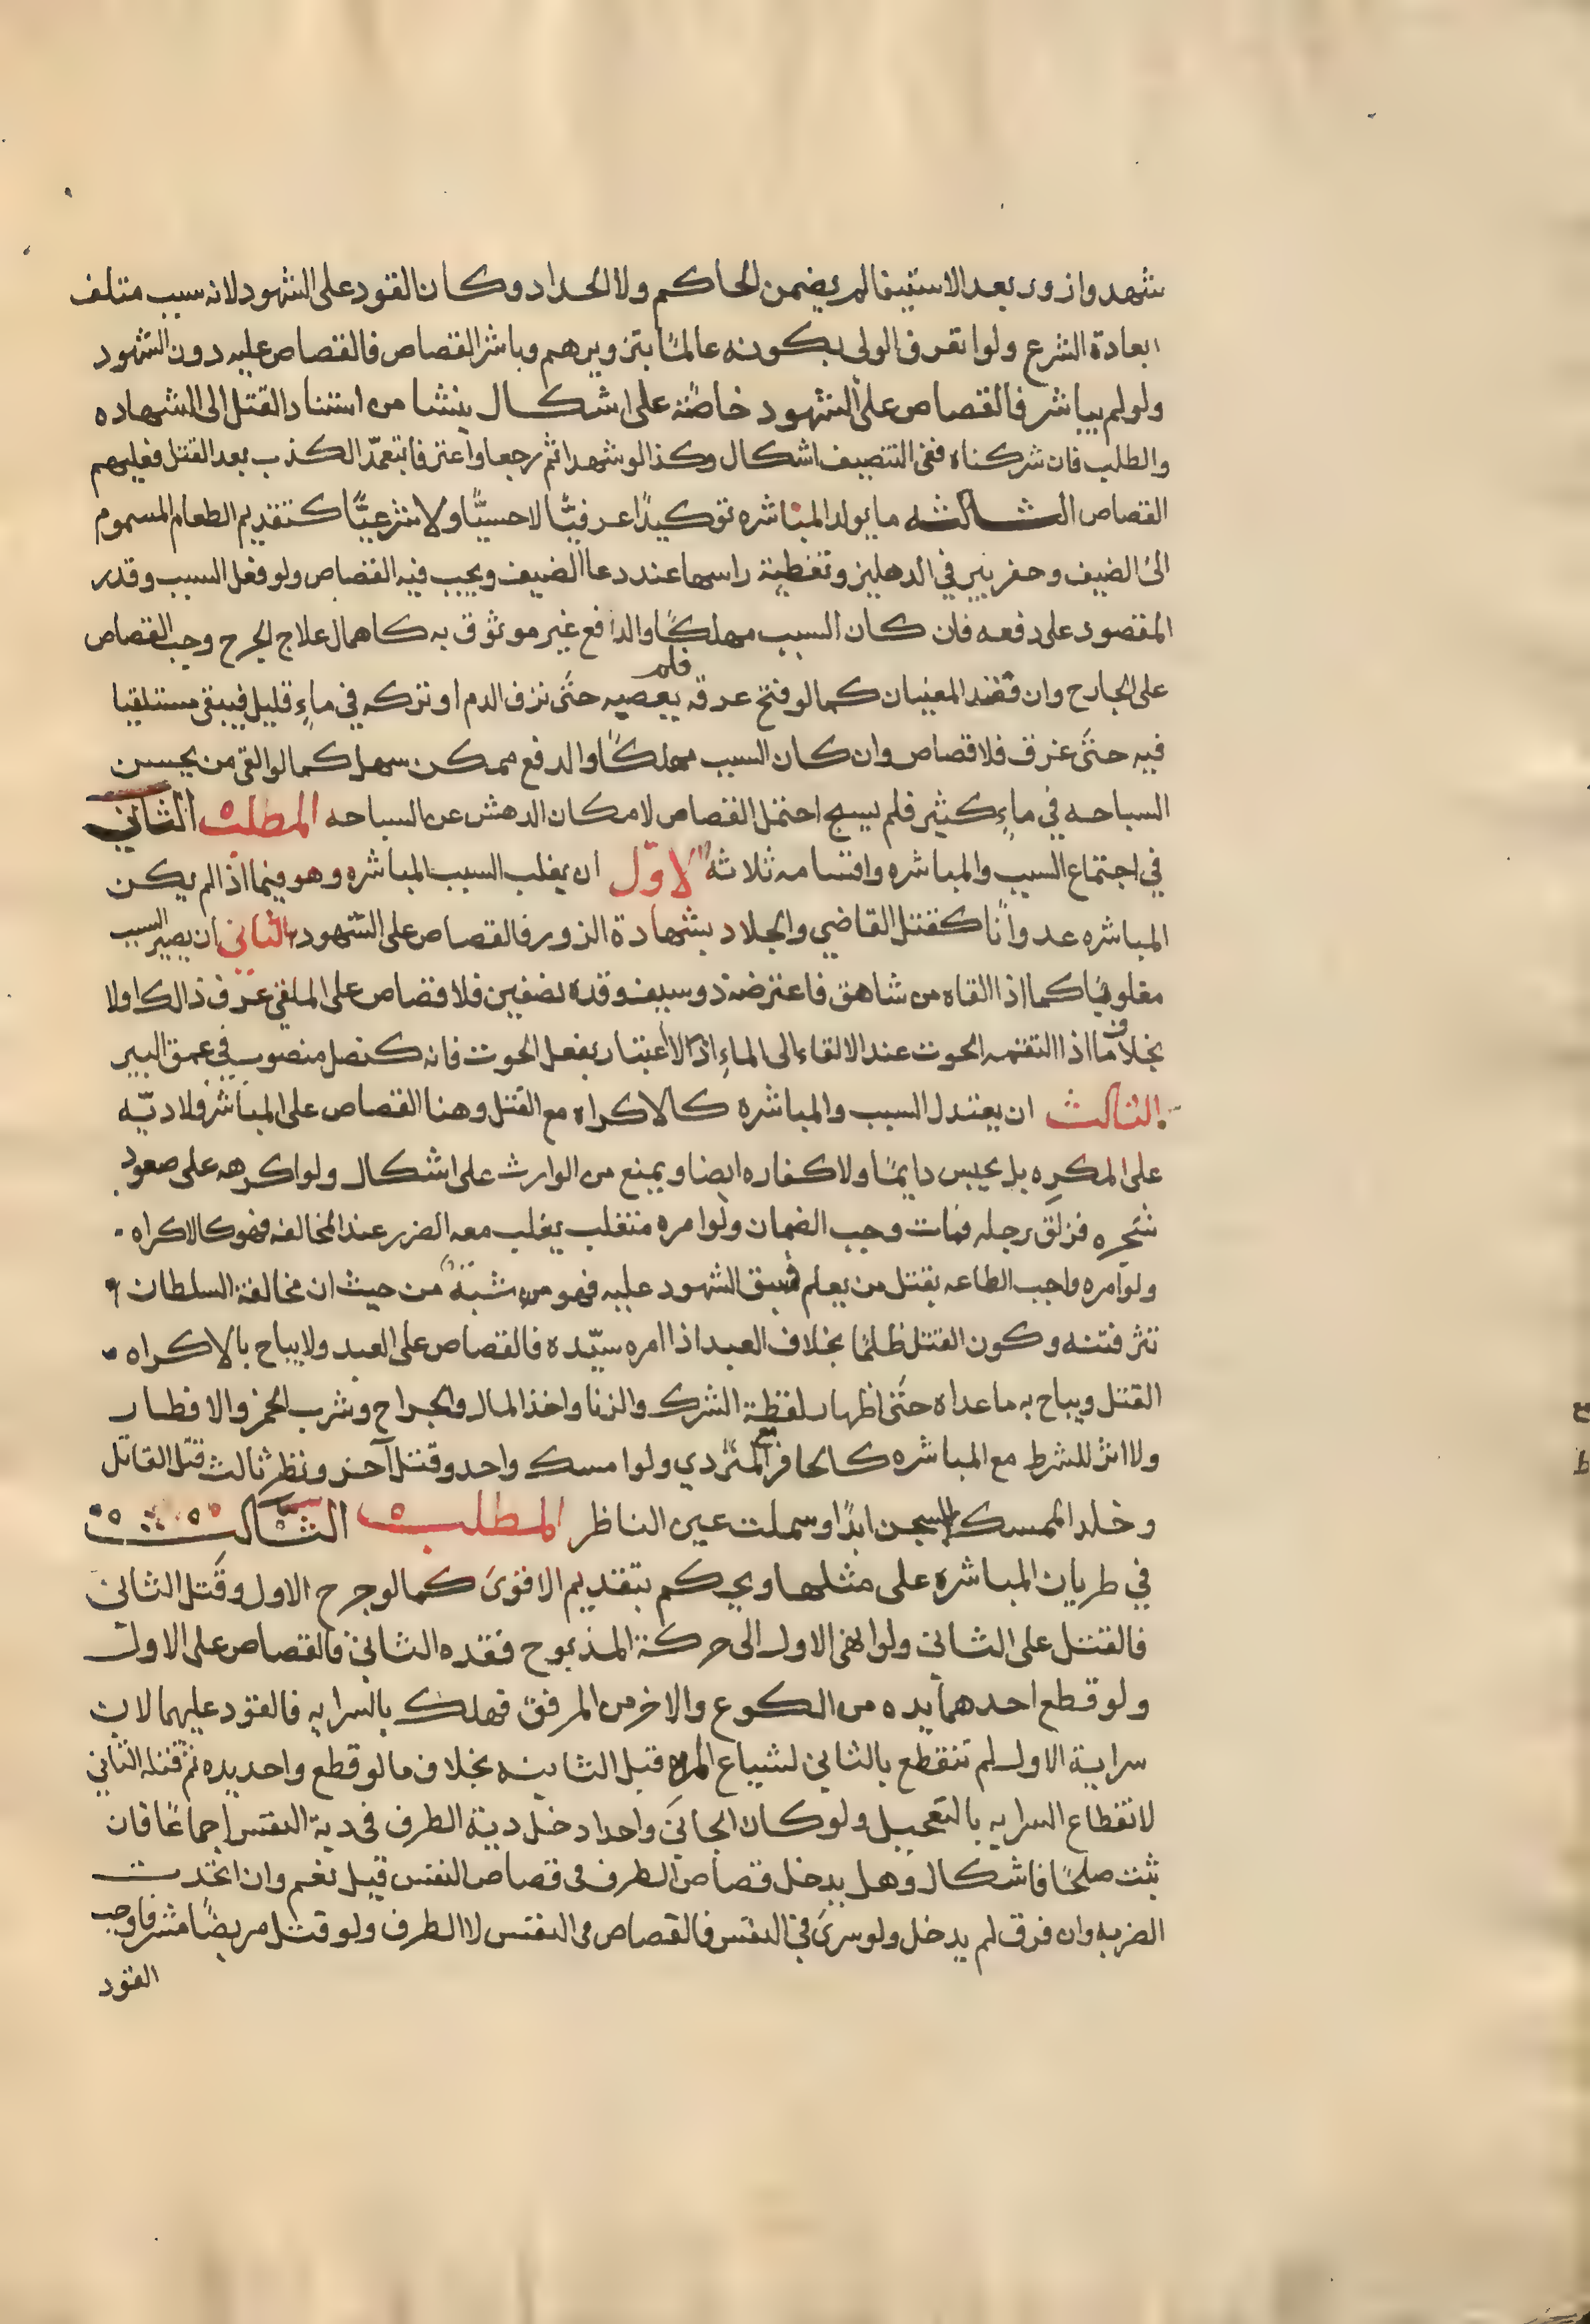 شهدوا زورر بعد الاستيفا لم يضمن الحاكم ولا الحداد وكان القود على الشهود لانه سبب متلف
بعادة الشرع ولو اتعرف الولى بكونه عالمًا بتزويرهم وباشر القصاص فالقصاص عليه دون الشهود
ولو لم يباشر فالقصاص على الشهود خاصّة على اشكال ينشا من استناد القتل الى الشهاده
والطلب فان شركناه ففى التنصيف اشكال وكذا لو شهدا ثم رجعا واعترفا بتعمّد الكذب بعد القتل فعليهم
القصاص الثالثه ما يولد المباشره توكيدًا عرفيًّا لا حسيًّا ولا شرعيًّا كتقديم الطعام المسموم
الى الضيف وحفر بير في الدهليز وتغطية راسها عند دعا الضيف ويجب فيه القصاص ولو فعل السبب وقدر
المقصود على دفعه فان كان السبب مهلكًا والدافع غير موثوق به كاهمال علاج الجرح وجب القصاص
على الجارح وان فقد المعنيان كما لو فتح عرقه فلم يعصبه حتى نزف الدم او تركه في ماءٍ قليل فيبقى مستلقيا
فيه حتى غرق فلا قصاص وان كان السبب مهلكًا والدفع ممكن سهل كما لو القى من يحسن
السباحه في ماءٍ كثير فلم يسبح احتمل القصاص لامكان الدهش عن السباحه المطلب الثاني
في اجتماع السبب والمباشره واقسامه ثلاثة الاوّل ان يغلب السبب المباشره وهو فيما اذا لم يكن
المباشره عدوانًا كقتل القاضي والجلاد بشهادة الزور فالقصاص على الشهود الثانى ان يصير السبب
مغلوبًا كما اذا القاه من شاهق فاعترضه ذو سيف وقده نصفين فلا قصاص على الملقي عرف ذالك اولا
بخلاف ما اذا التقمه الحوت عند الالقاء الى الماءِ اذ لا اعتبار بفعل الحوت فانه كنصل منصوب في عمق البير
الثالث ان يعتدل السبب والمباشره كالاكراه مع القتل وهنا القصاص على المباشر ولا ديّه
على المكرِه بل يحبس دايمًا ولا كفاره ايضا ويمنع من الوارث على اشكال ولو اكرهه على صعود
شجره فزلق رجله فمات وجب الضمان ولو امره متغلب يغلب معه الضرر عند المخالفه فهو كالاكراه
ولو امره واجب الطاعه بقتل من يعلم فسق الشهود عليه فهو شبهةً من حيث ان مخالفة السلطان
تثر فتنه وكون القتل ظلمًا بخلاف العبد اذا امره سيّده فالقصاص على العبد ولا يباح بالاكراه
القتل ويباح به ما عداه حتى اظهار لفظة الشرك والزنا واخذ المال والجراح وشرب الخمر والافطار
ولا اثر للشرط مع المباشره كالحافر مع المتردي ولو امسك واحد وقتل آخر ونظر ثالث قتل القاتل
وخلد الممسك السجن ابدًا وسملت عين الناظر المطلب الثالث
في طريان المباشره على مثلها ويحكم بتقديم الاقوى كما لو جرح الاول وقَتل الثاني
فالقتل على الثاني ولو انهى الاول الى حركة المذبوح فقده الثاني فالقصاص على الاول
ولو قطع احدهما يده من الكوع والاخر من المرفق فهلك بالسرايه فالقود عليهما لان
سراية الاول لم تنقطع بالثاني لشياع المه قبل الثانيه بخلاف ما لو قطع واحد يده ثم قتله الثاني
لانقطاع السرايه بالتعجيل ولو كان الجاني واحدا دخل دية الطرف في دية النفس إجماعًا فان
ثبت صلحًا فاشكال وهل يدخل قصاص الطرف في قصاص النفس قيل نعم وان اتحدت
الضربه وان فرق لم يدخل ولو سرى في النفس فالقصاص في النفس لا الطرف ولو قتل مريضًا مشرفا وجب
القود